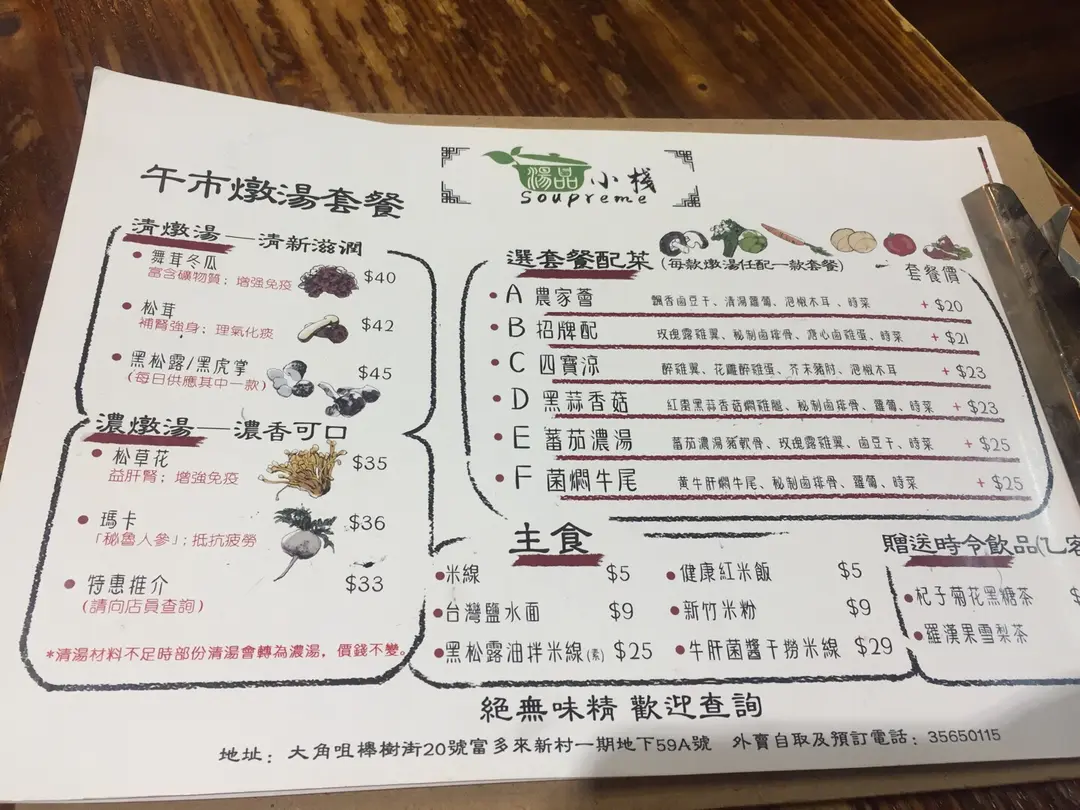 湯品小棧
Soupreme
午市燉湯套餐
清燉湯—清新滋潤
舞茸冬瓜 $40
富含礦物質；增强免疫
松茸 $42
補腎強身；理氣化痰
黑松露/黑虎掌 $45
(每日供應其中一款)
濃燉湯—濃香可口
松草花 $35
益肝腎；增強免疫
瑪卡 $36
「秘魯人參」；抵抗疲勞
特惠推介 $33
(請向店員查詢)
*清湯材料不足時部份清湯會轉為濃湯，價錢不變。
選套餐配菜(每款燉湯任配一款套餐) 套餐價
A 農家薈 飄香鹵豆干、清湯蘿蔔、泡椒木耳、時菜 +$20
B 招牌配 玫瑰露雞翼、秘制鹵排骨、溏心鹵雞蛋、時菜 +$21
C 四寶涼 醉雞翼、花雕醉雞蛋、芥末豬肘、泡椒木耳 +$23
D 黑蒜香菇 紅棗黑蒜香菇燜雞腿、秘制鹵排骨、蘿蔔、時菜 +$23
E 蕃茄濃湯 蕃茄濃湯豬軟骨、玫瑰露雞翼、鹵豆干、時菜 +$25
F 菌燜牛尾 黃牛肝燜牛尾、秘制鹵排骨、蘿蔔、時菜 +$25
主食
米線 $5
健康紅米飯 $5
台灣鹽水面 $9
新竹米粉 $9
黑松露油拌米線(素) $25
牛肝菌醬干撈米線 $29
贈送時令飲品(乙客
杞子菊花黑糖茶 $
羅漢果雪梨茶
絕無味精 歡迎查詢
地址：大角咀櫸樹街20號富多來新村一期地下59A號 外賣自取及預訂電話：35650115